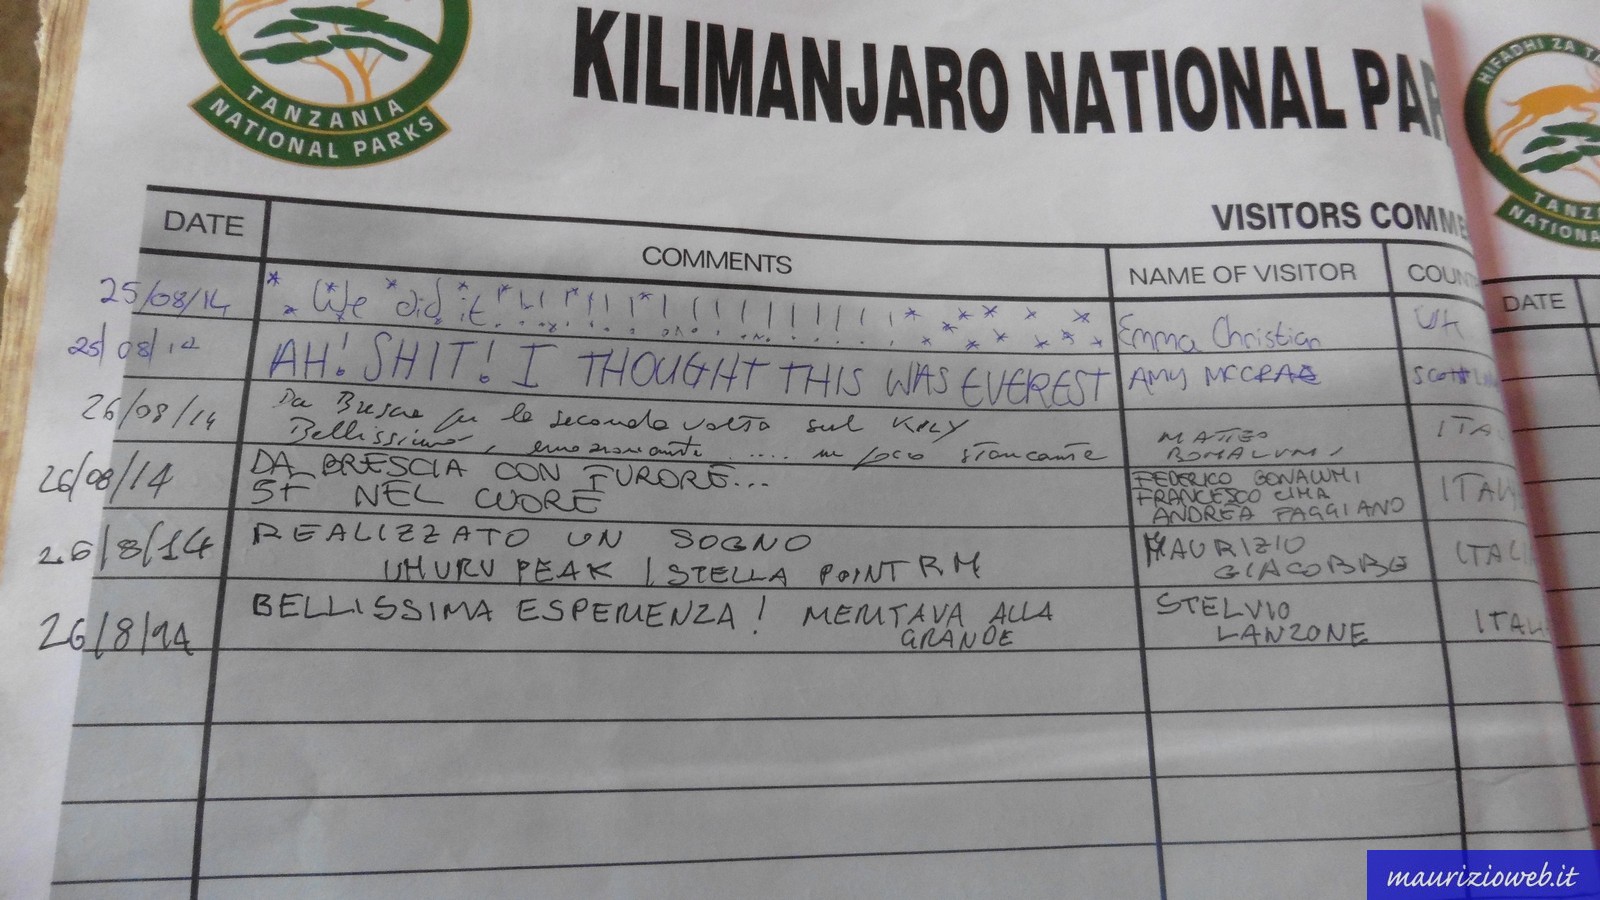 TANZANIA
NATIONAL PARKS
KILIMANJARO NATIONAL PAR
HIFADHI ZA TA
TANZ
NATIONA
VISITORS COMME
DATE COMMENTS NAME OF VISITOR COUNT
DATE
25/08/14 We did it!!!!!!!!!!!!!!! Emma Christian UK
25/08/14 AH! SHIT! I THOUGHT THIS WAS EVEREST AMY MCCRAE
26/08/14 Da Brescia per la seconda volta sul KILY MATTEO ITA
Bellissimo, emozionante .... un poco stancante BONALUMI
26/08/14 DA BRESCIA CON FURORE... FEDERICO BONALUMI ITAL
5+ NEL CUORE FRANCESCO CIMA
ANDREA FAGGIANO
26/8/14 REALIZZATO UN SOGNO MAURIZIO ITALI
UHURU PEAK / STELLA POINT RM GIACOBBE
26/8/14 BELLISSIMA ESPERIENZA! MERITAVA ALLA STELVIO ITAL
GRANDE LANZONE
maurizioweb.it